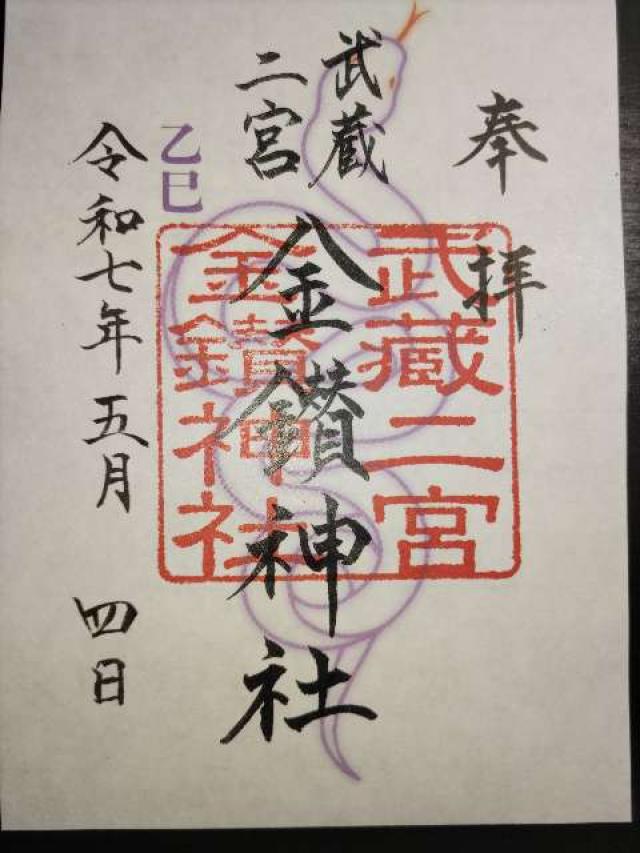 奉拝
武蔵
二宮
金鑚神社
武蔵二宮
金鑚神社
乙巳
令和七年五月四日